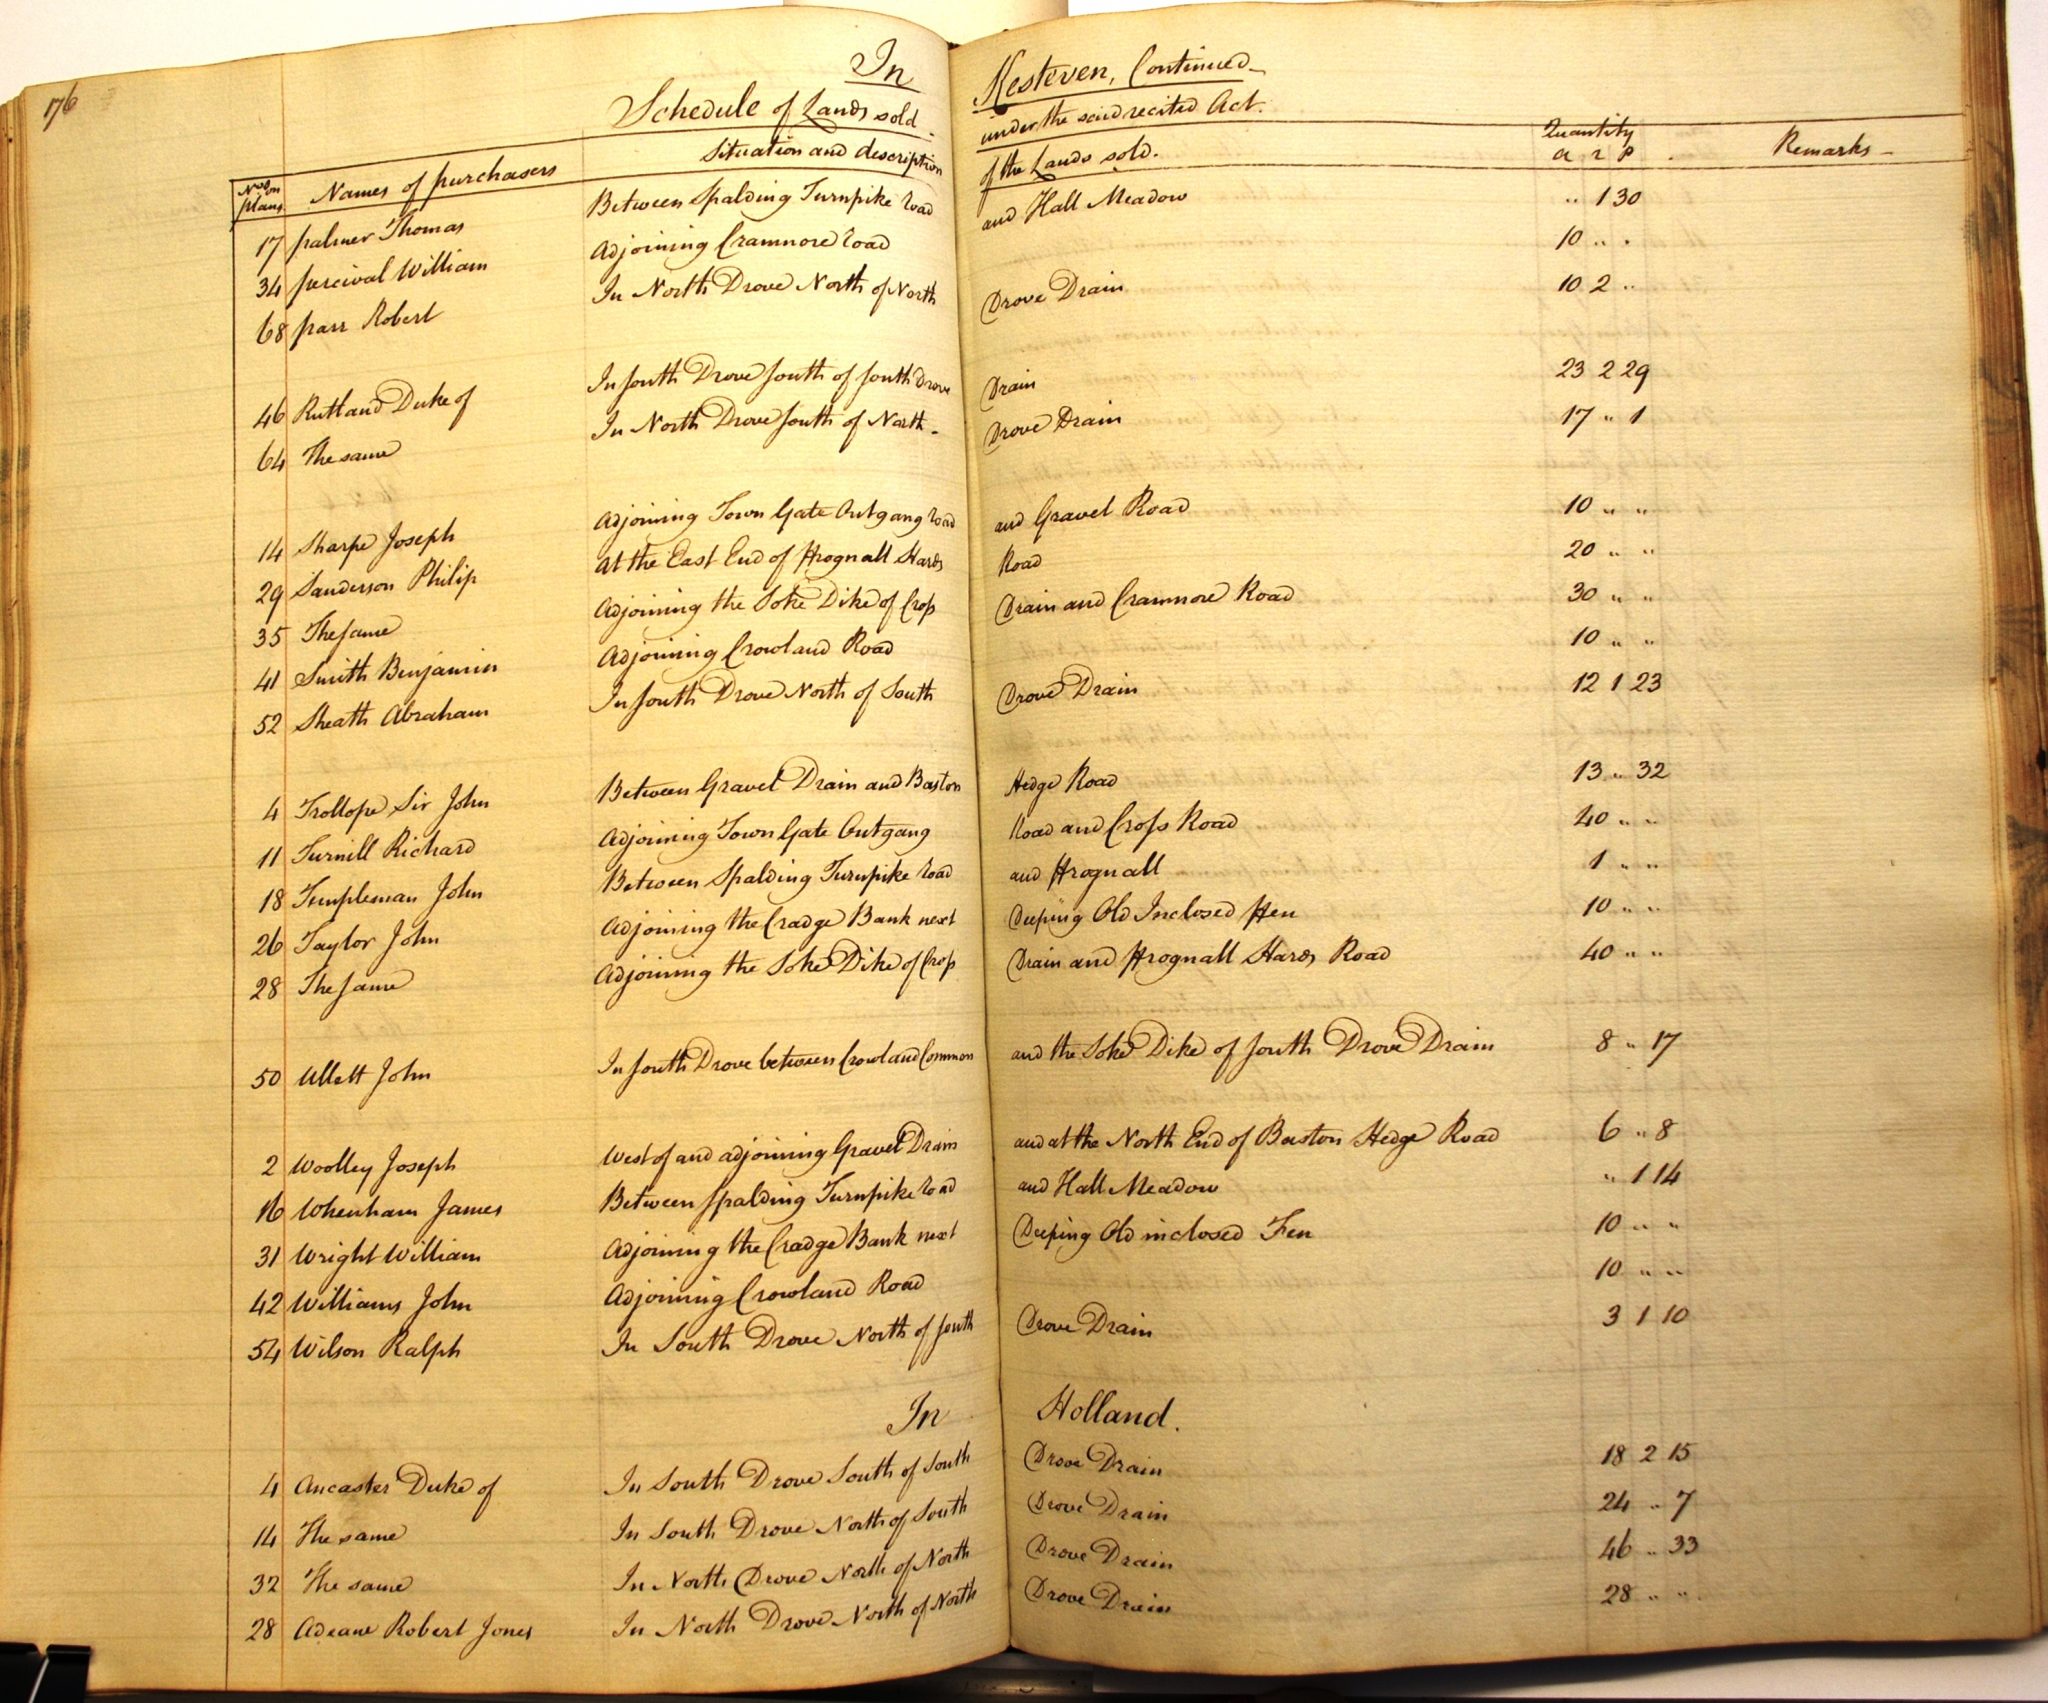 176
In Kesteven, Continued
Schedule of Lands sold under the said recited Act.
Nos. on plans Names of purchasers Situation and description of the Lands sold. Quantity a r p Remarks
17 palmer Thomas Between Spalding Turnpike road and Hall Meadow " 1 30
34 percival William Adjoining Cranmore road 10 " "
68 parr Robert In North Drove North of North Drove Drain 10 2 "
46 Rutland Duke of In South Drove South of South Drove Drain 23 2 29
64 The same In North Drove South of North Drove Drain 17 " 1
14 Sharpe Joseph Adjoining Town Gate Outgang road and Gravel Road 10 " "
29 Sanderson Philip At the East End of Frognall Hards Road 20 " "
35 The same Adjoining the Soke Dike of Crofs Drain and Cranmore Road 30 " "
41 Smith Benjamin Adjoining Crowland Road 10 " "
52 Sheath Abraham In South Drove North of South Drove Drain 12 1 23
4 Trollope Sir John Between Gravel Drain and Baston Hedge Road 13 " 32
11 Turnill Richard Adjoining Town Gate Outgang Road and Crofs Road 40 " "
18 Templeman John Between Spalding Turnpike road and Frognall 1 " "
26 Taylor John Adjoining the Cradge Bank next Deeping Old Inclosed Fen 10 " "
28 The same Adjoining the Soke Dike of Crofs Drain and Frognall Hards Road 40 " "
50 Ullett John In South Drove between Crowland Common and the Soke Dike of South Drove Drain 8 " 17
2 Woolley Joseph West of and adjoining Gravel Drain and at the North End of Baston Hedge Road 6 " 8
16 Whenham James Between Spalding Turnpike road and Hall Meadow " 1 14
31 Wright William Adjoining the Cradge Bank next Deeping Old inclosed Fen 10 " "
42 Williams John Adjoining Crowland Road 10 " "
54 Wilson Ralph In South Drove North of South Drove Drain 3 1 10
In Holland.
4 Ancaster Duke of In South Drove South of South Drove Drain 18 2 15
14 The same In South Drove North of South Drove Drain 24 " 7
32 The same In North Drove North of North Drove Drain 46 " 33
28 Adeane Robert Jones In North Drove North of North Drove Drain 28 " "